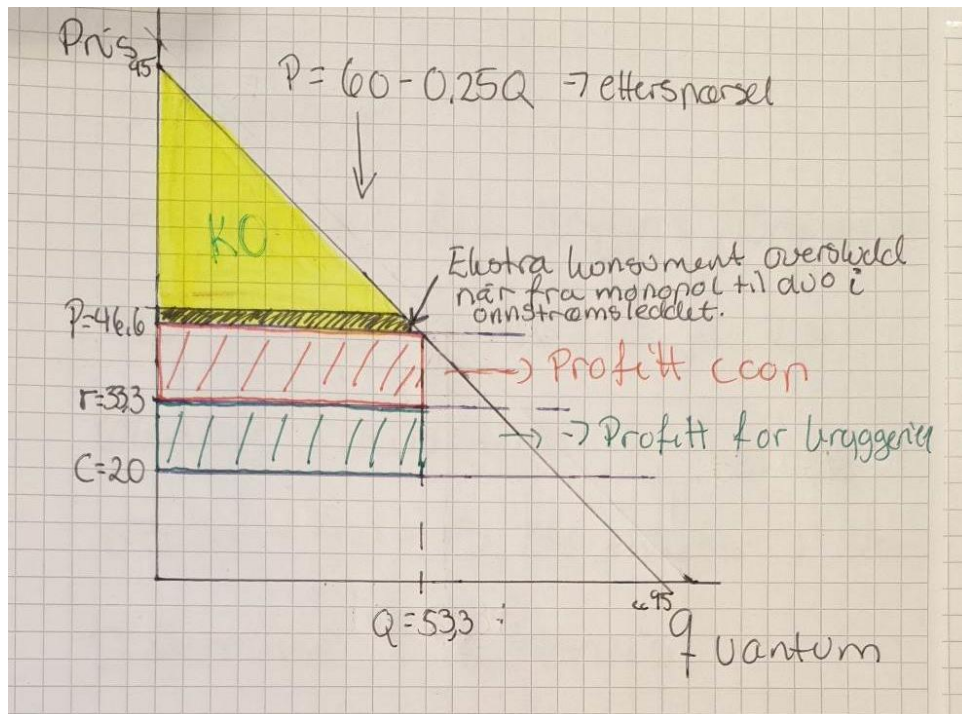 Pris
95
P = 60 - 0,25Q → etterspørsel
KO
Ekstra konsument overskudd
når fra monopol til duo i
onnstrømsleddet.
P=46,6
→ Profitt coop
r=33,3
→ → Profitt for bryggeriet
C=20
Q=53,3
95
quantum